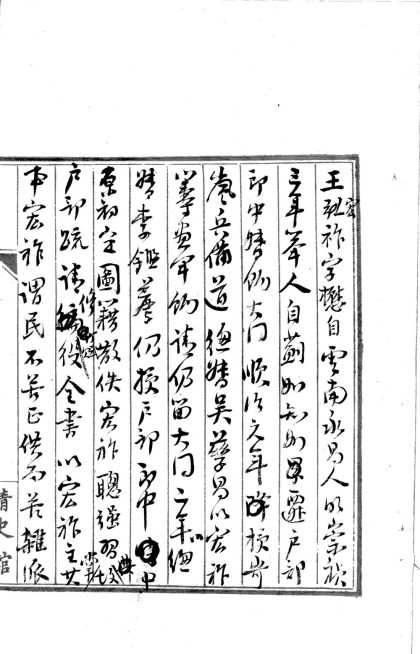 王宏祚字懋自雲南永昌人明崇禎
三年舉人自薊州知州累遷戶部
郎中督餉大同順治元年降授岢
嵐兵備道總督吳孳昌以宏祚
善畫軍餉請仍留大同二年總
督李鑑薦仍授戶部郎中中
原初定圖籍散佚宏祚聰強習掌故
戶部疏請修賦役全書以宏祚主其
事宏祚謂民不苦正供而苦雜派
清史館